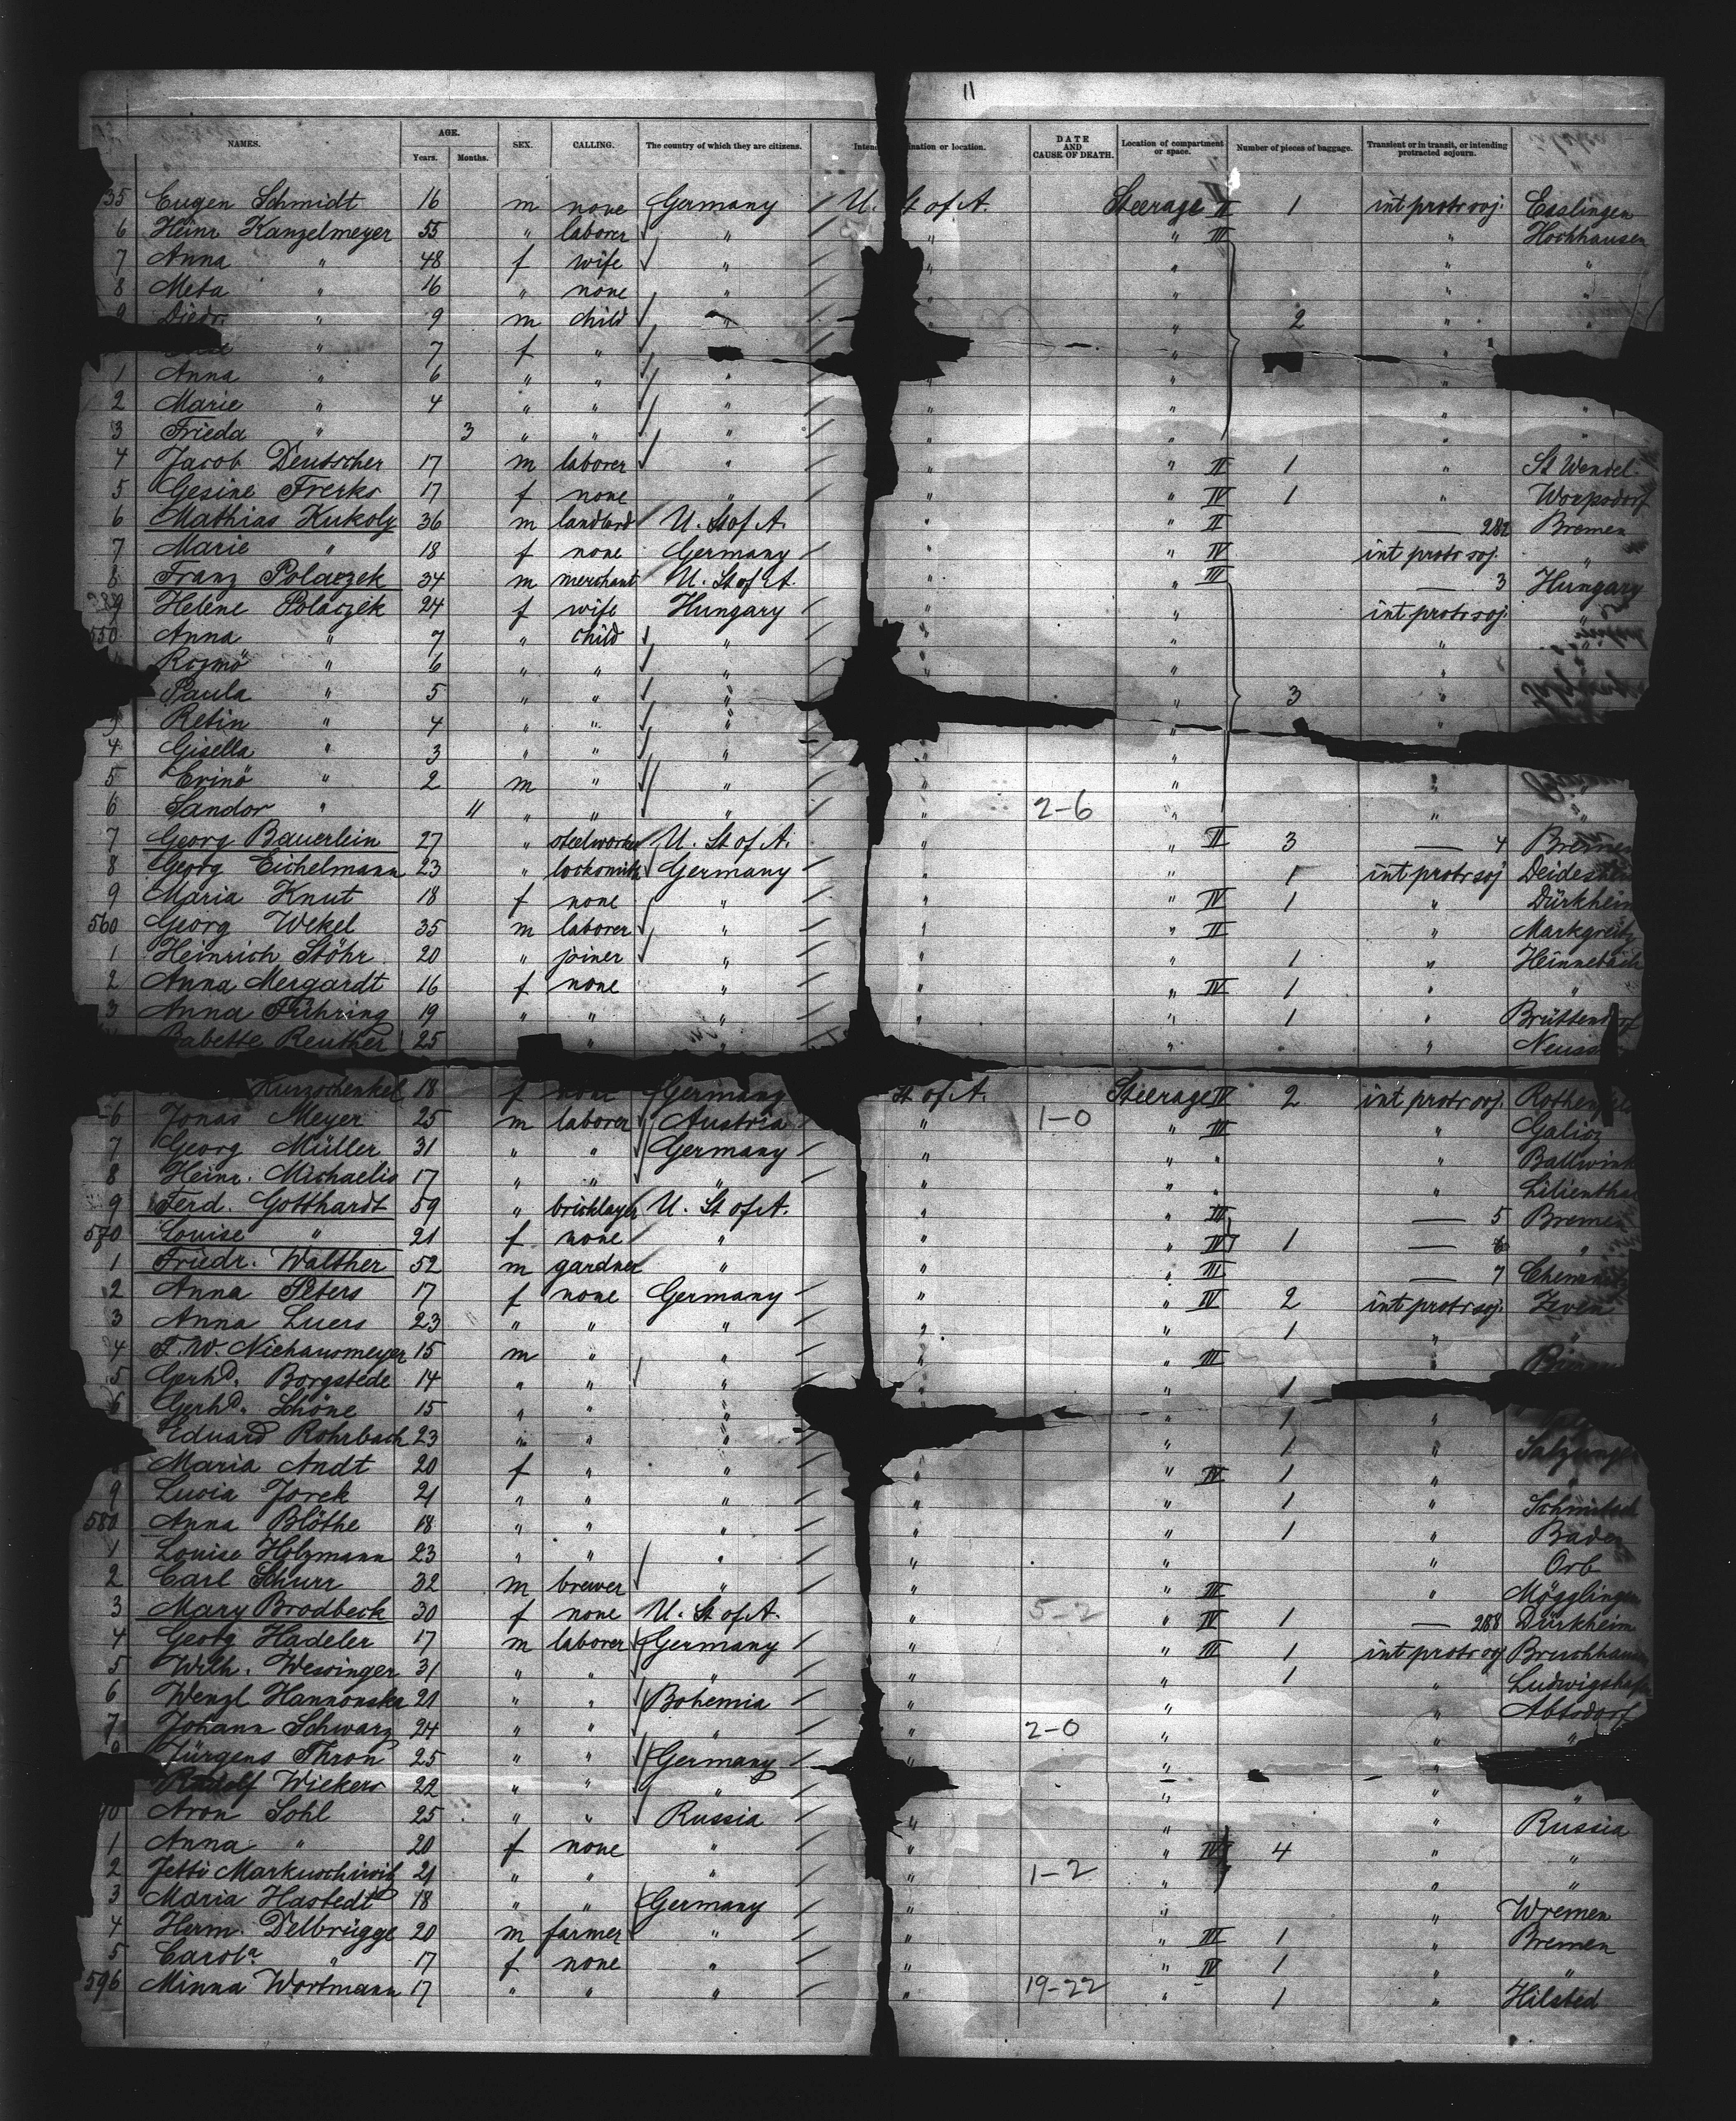 11
NAMES. AGE. Years. Months. SEX. CALLING. The country of which they are citizens. Inten ination or location. DATE AND CAUSE OF DEATH. Location of compartment or space. Number of pieces of baggage. Transient or in transit, or intending protracted sojourn.
35 Eugen Schmidt 16 m none Germany U. St of A. Steerage II 1 int protr soj. Esslingen
6 Heinr Kanzelmeyer 55 " laborer " " " III " Hochhausen
7 Anna " 48 f wife " " " " "
8 Meta " 16 " none " " " " "
9 Diedr. " 9 m child " " " 2 " "
" 7 f " " " "
1 Anna " 6 " " " " " "
2 Marie " 4 " " " " " " "
3 Frieda " 3 " " " " " " "
4 Jacob Deutscher 17 m laborer " " " II 1 " St Wendel
5 Gesine Frerks 17 f none " " " IV 1 " Worpsdorf
6 Mathias Kukoly 36 m landlord U. St of A. " " II — 282 Bremen
7 Marie " 18 f none Germany " " IV int protr soj. "
8 Franz Polaczek 34 m merchant U. St of A. " " III — 3 Hungary
9 Helene Polaczek 24 f wife Hungary " " int protr soj. "
550 Anna " 7 " child " " " " "
Rozmö " 6 " " " " " "
Paula " 5 " " " " 3 "
3 Retin " 4 " " " " " "
4 Gisella " 3 " " " " "
5 Erinö " 2 m " " " " "
6 Sandor " 11 " " " " 2-6 " " "
7 Georg Bauerlein 27 " steelworker U. St of A. " " II 3 — 4 Bremen
8 Georg Eichelmann 23 " locksmith Germany " " 1 int protr soj Deideshei
9 Maria Knut 18 f none " " " IV 1 " Dürkheim
560 Georg Wekel 35 m laborer " " " II " Markgreitz
1 Heinrich Stöhr 20 " joiner " " " 1 " Heinnebach
2 Anna Mergardt 16 f none " " " IV 1 " "
3 Anna Führing 19 " " " " " 1 " Brüttendorf
Babette Reuther 25 " " " " Neuss
Kurzschenkel 18 f none Germany St of A. Steerage IV 2 int protr soj. Rothenfeld
6 Jonas Meyer 25 m laborer Austria " 1-0 " III " Galiz
7 Georg Müller 31 " " Germany " " " " Ballwink
8 Heinr. Michaelis 17 " " " " " " " Lilienthal
9 Ferd. Gotthardt 59 " bricklayer U. St of A. " " III — 5 Bremen
570 Louise " 21 f none " " " IV 1 — 6 "
1 Friedr. Walther 52 m gardner " " " III — 7 Chemnitz
2 Anna Peters 17 f none Germany " " IV 2 int protr soj. Zeven
3 Anna Luers 23 " " " " " 1 " "
4 F. W. Niehausmeyer 15 m " " " " III "
5 Gerhd. Borgstede 14 " " " " " 1
6 Gerhd. Schöne 15 " " " " 1 "
Eduard Rohrbach 23 " " " " " 1 " Salzunge
Maria Andt 20 f " " " " IV 1 " "
9 Lucia Jorek 21 " " " " " 1 "
580 Anna Blöthe 18 " " " " " 1 " Baden
1 Louise Holzmann 23 " " " " " " Orb
2 Carl Schurr 32 m brewer " " " III " Mögglingen
3 Mary Brodbeck 30 f none U. St of A. " 5-2 " IV 1 — 288 Dürkheim
4 Georg Hadeler 17 m laborer Germany " " III 1 int protr soj Bruchhausen
5 Wilh. Wessinger 31 " " " " " 1 " Ludwigshafen
6 Wenzl Hannonska 21 " " Bohemia " " " Abtsdorf
7 Johann Schwarz 24 " " " " 2-0 " " "
Jürgens Thron 25 " " Germany " "
Rudolf Wiekers 22 " " " " " "
90 Aron Sohl 25 " " Russia " " " Russia
1 Anna " 20 f none " " " IV 4 " "
2 Jetti Markuschiwitz 21 " " " " 1-2 " " "
3 Maria Hastedt 18 " " Germany " " " Wremen
4 Herm. Delbrügge 20 m farmer " " " III 1 " Bremen
5 Carola. " 17 f none " " " IV 1 " "
596 Minna Wortmann 17 " " " " 19-22 " 1 " Hilsted